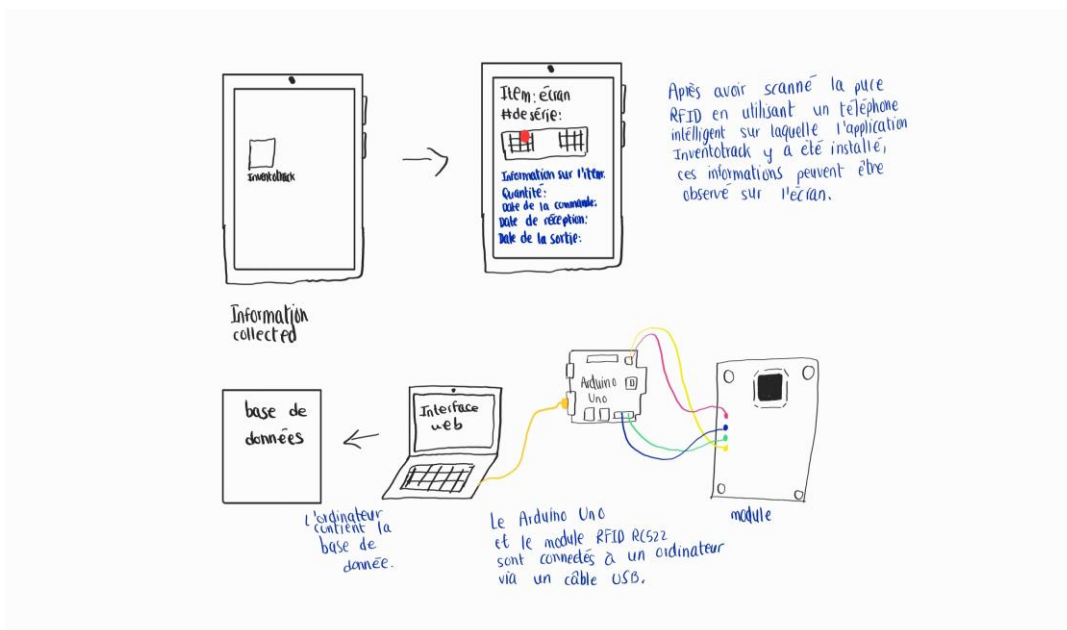 Inventotrack
Item: écran
#de série:
Information sur l'item.
Quantité:
Date de la commande:
Date de réception:
Date de la sortie:
Après avoir scanné la puce
RFID en utilisant un téléphone
intélligent sur laquelle l'application
Inventotrack y a été installé,
ces informations peuvent être
observé sur l'écran.
Information
collected
base de
données
Interface
web
Arduino
Uno
module
L'ordinateur
contient la
base de
donnée.
Le Arduino Uno
et le module RFID RC522
sont connectés à un ordinateur
via un câble USB.